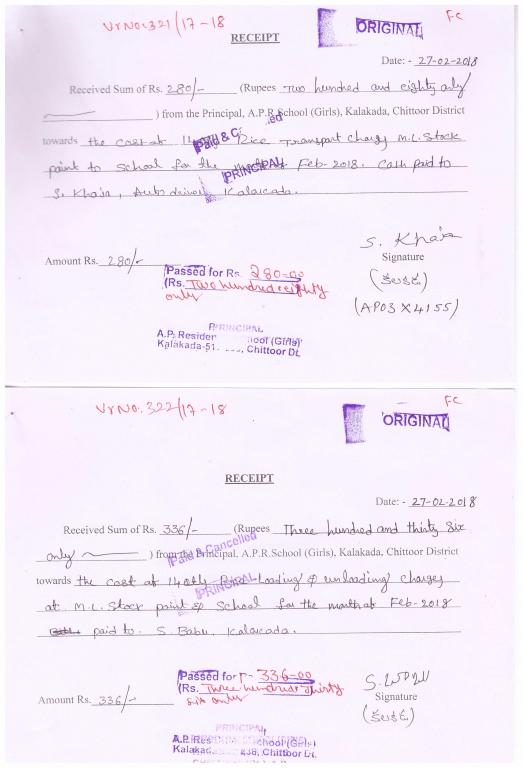 Vr No: 321/17-18
FC
ORIGINAL
RECEIPT
Date: - 27-02-2018
Received Sum of Rs. 280/- (Rupees Two hundred and eighty only
) from the Principal, A.P.R.School (Girls), Kalakada, Chittoor District
towards the cost of Rice Transport charges M.L. Stock
point to School for the Feb-2018. Cash paid to
S. Khaja, Auto driver, Kalakada.
Paid & C
PRINCIPAL
S. Khaja
Amount Rs. 280/-
Signature
Passed for Rs. 280-00
(Rs. Two hundred eighty
only
(కలకడ)
(AP03 X 4155)
PRINCIPAL
A.P. Resider School (Girls)
Kalakada-51 , Chittoor Dt.
Vr No. 322/17-18
FC
ORIGINAL
RECEIPT
Date: - 27-02-2018
Received Sum of Rs. 336/- (Rupees Three hundred and thirty Six
only ) from the Principal, A.P.R.School (Girls), Kalakada, Chittoor District
Paid & Cancelled
towards the cost of Rice Loading & unloading charges
PRINCIPAL
at M.L. Stock point & School for the month of Feb-2018
paid to S. Babu, Kalakada.
Passed for 336-00
(Rs. Three hundred thirty
six only
Amount Rs. 336/-
Signature
(కలకడ)
PRINCIPAL
A.P. Res School (Girls)
Kalakada 236, Chittoor Dt.